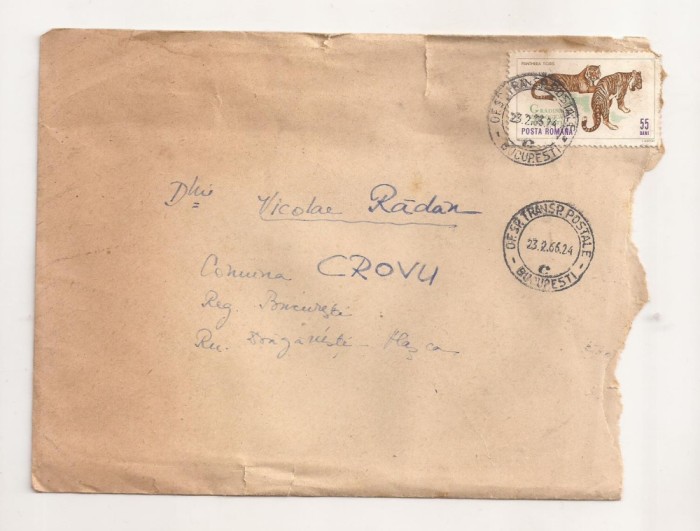 PANTHERA TIGRIS
POSTA ROMÂNĂ
55
BANI
OF. SP. TRANSP. POSTALE
23.2.66.24
C.
BUCUREȘTI
Dlui Nicolae Rădan
OF. SP. TRANSP. POSTALE
23.2.66.24
C.
BUCUREȘTI
Comuna CROVU
Reg. București
Rn. Drăgănești - Vlașca